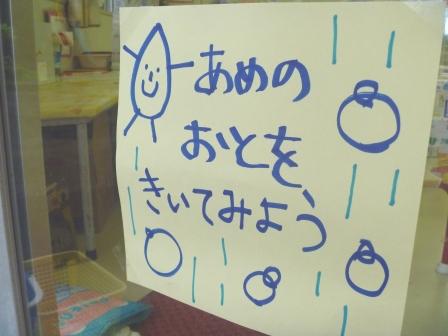 あめの
おとを
きいてみよう